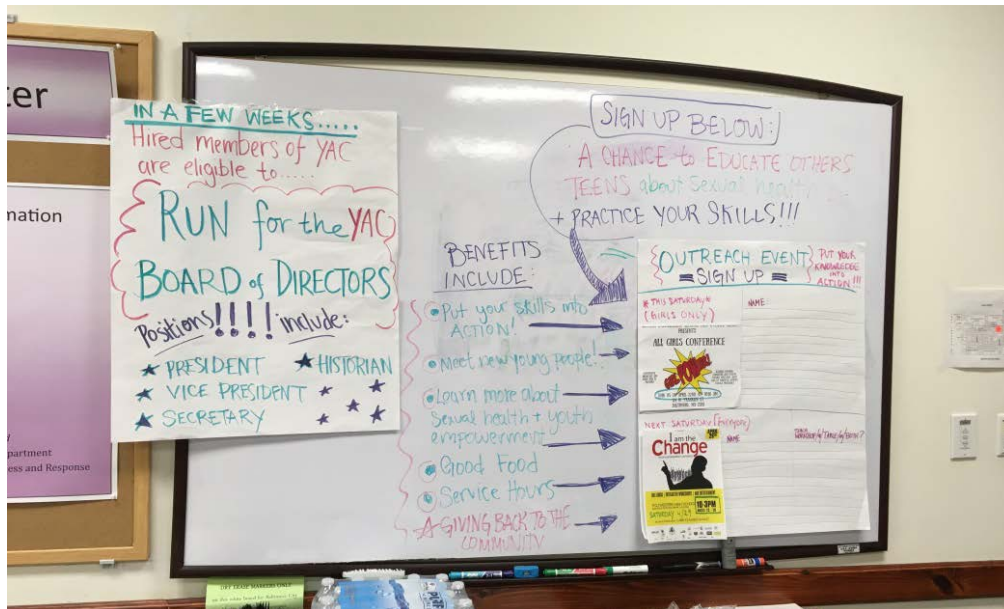 ter
mation
partment
ess and Response
IN A FEW WEEKS.....
Hired members of YAC
are eligible to.....
RUN for the YAC
BOARD of DIRECTORS
Positions!!!! include:
★ PRESIDENT ★ HISTORIAN
★ VICE PRESIDENT
★ SECRETARY
SIGN UP BELOW:
A CHANCE to EDUCATE OTHERS
TEENS about sexual health
+ PRACTICE YOUR SKILLS!!!
BENEFITS
INCLUDE:
Put your skills into
ACTION!
Meet new young people!
Learn more about
sexual health + youth
empowerment
Good Food
Service Hours
GIVING BACK TO THE
COMMUNITY
OUTREACH EVENT
SIGN UP
PUT YOUR
KNOWLEDGE
INTO
ACTION!!!
*THIS SATURDAY*
(GIRLS ONLY)
NAME
PRESENTS
ALL GIRLS CONFERENCE
GIRL POWER!
NEXT SATURDAY (Everyone)
NAME
I am the
Change
10-3PM
SATURDAY 4/29
DRY ERASE MARKERS ONLY